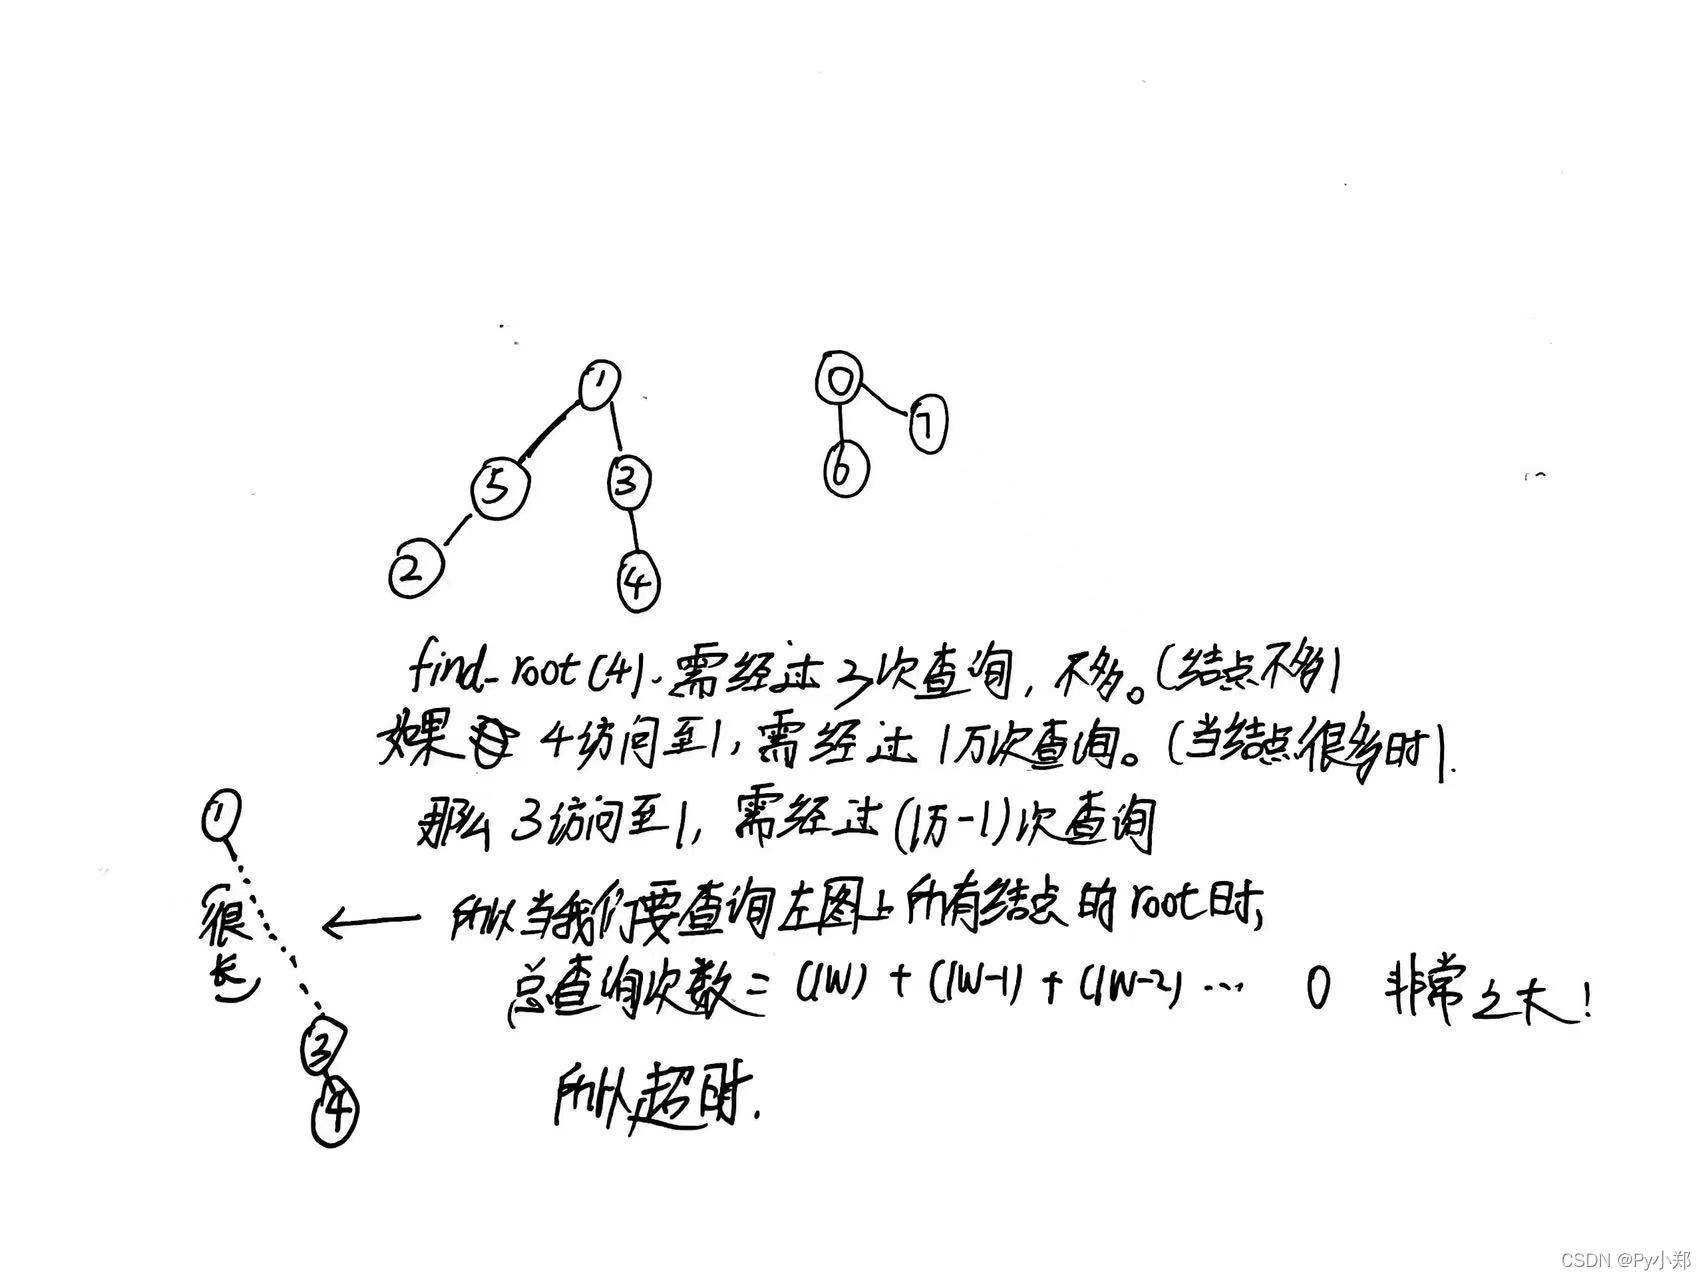 1
0
7
5
3
6
2
4
find_root(4).需经过3次查询,不多。(结点不多)
如果 4访问至1,需经过1万次查询。(当结点很多时).
1
那么3访问至1,需经过(1万-1)次查询
很长
← 所以当我们要查询左图上所有结点的root时,
总查询次数=(1W)+(1W-1)+(1W-2)... 0 非常之大!
3
4
所以超时.
CSDN @Py小郑